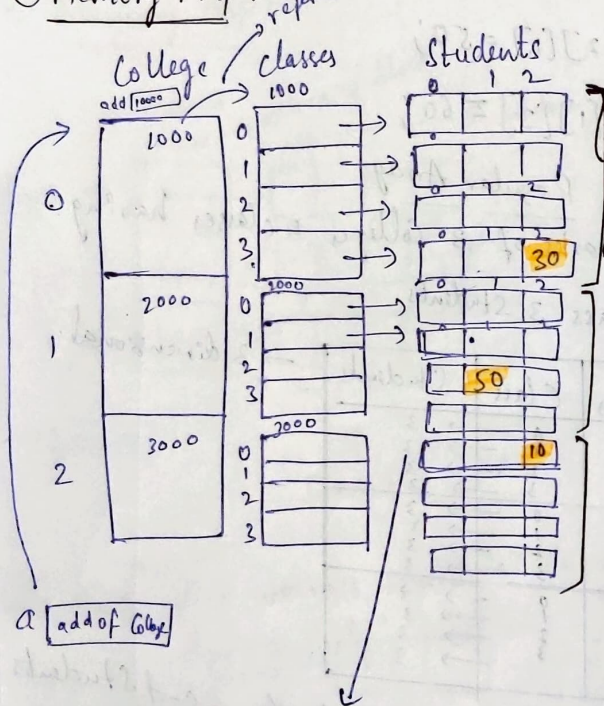 Memory
refer
College Classes Students
add 10000
1000
1000
0 1 2
0
1
2
3
0
0
0 1 2
0 1 2
30
0
2000
2000
0 1 2
1
0
1
2
3
50
2
3000
3000
0
1
2
3
10
a add of College